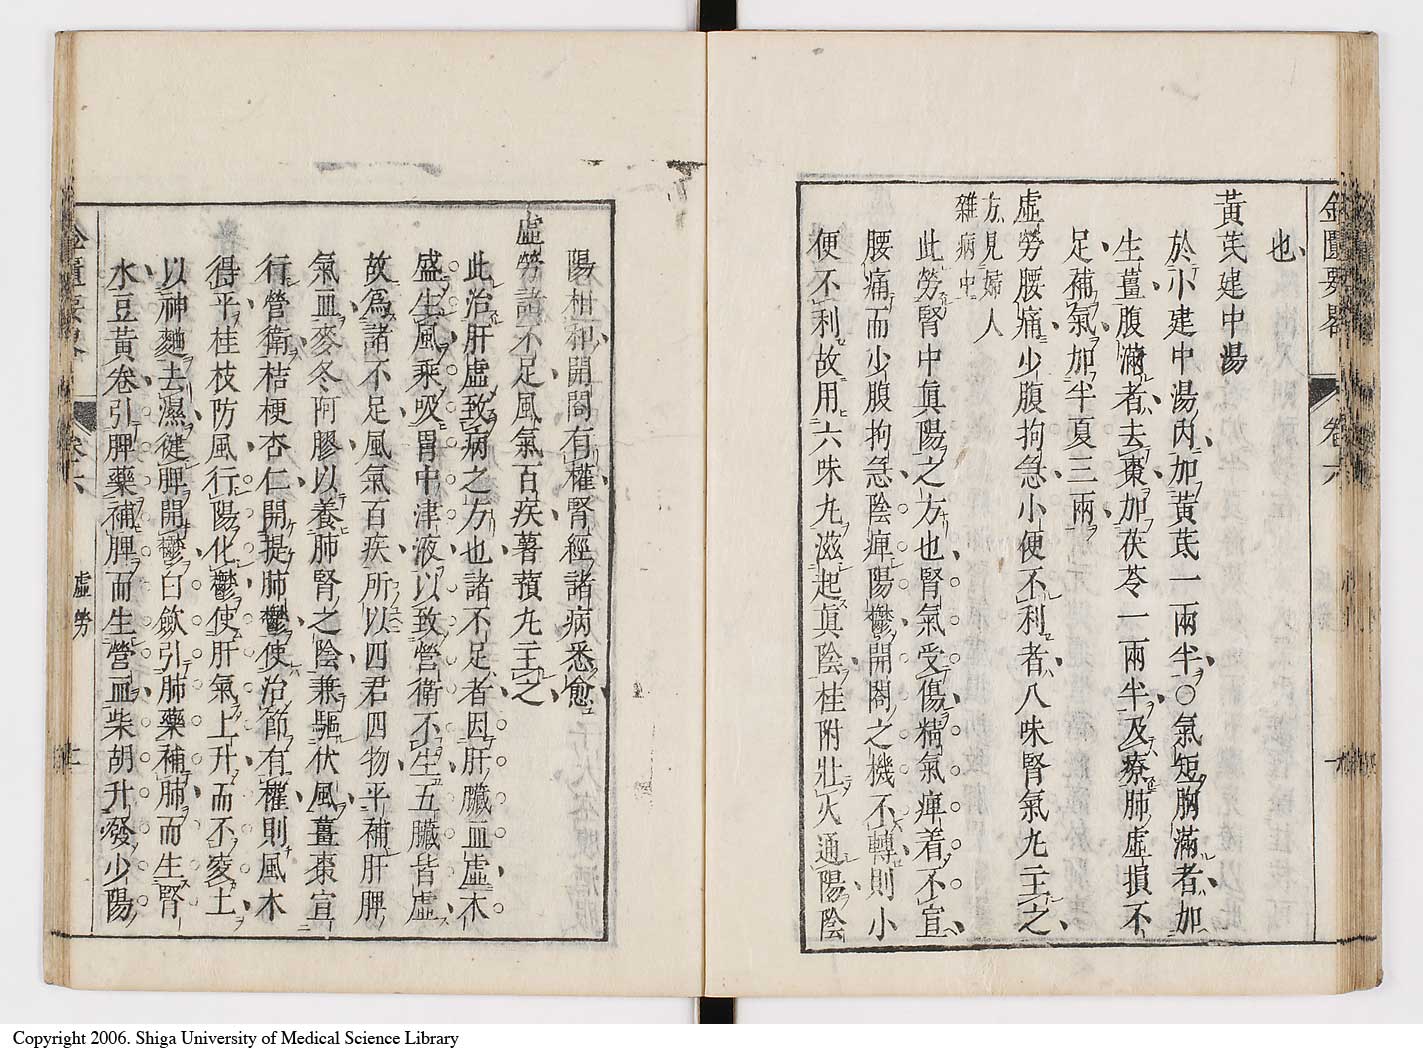 金匱要畧 卷六 十
也
黃芪建中湯
於小建中湯內加黃芪一兩半○氣短胸滿者加
生薑腹滿者去棗加茯苓一兩半及療肺虛損不
足補氣加半夏三兩
虛勞腰痛少腹拘急小便不利者八味腎氣丸主之
方見婦人
雜病中
此勞腎中眞陽之方也腎氣受傷精氣痺着不宣
腰痛而少腹拘急陰痺陽鬱開闔之機不轉則小
便不利故用六味丸滋起眞陰桂附壯火通陽陰
陽相和開闔有權腎經諸病悉愈
虛勞諸不足風氣百疾薯蕷丸主之
此治肝虛致病之方也諸不足者因肝臟血虛木
盛生風乘吸胃中津液以致營衛不生五臟皆虛
故爲諸不足風氣百疾所以四君四物平補肝脾
氣血麥冬阿膠以養肺腎之陰兼驅伏風薑棗宣
行營衛桔梗杏仁開提肺鬱使治節有權則風木
得平桂枝防風行陽化鬱使肝氣上升而不夌土
以神麯去濕健脾開鬱白歛引肺藥補肺而生腎
水豆黃卷引脾藥補脾而生營血柴胡升發少陽
虛勞
Copyright 2006. Shiga University of Medical Science Library